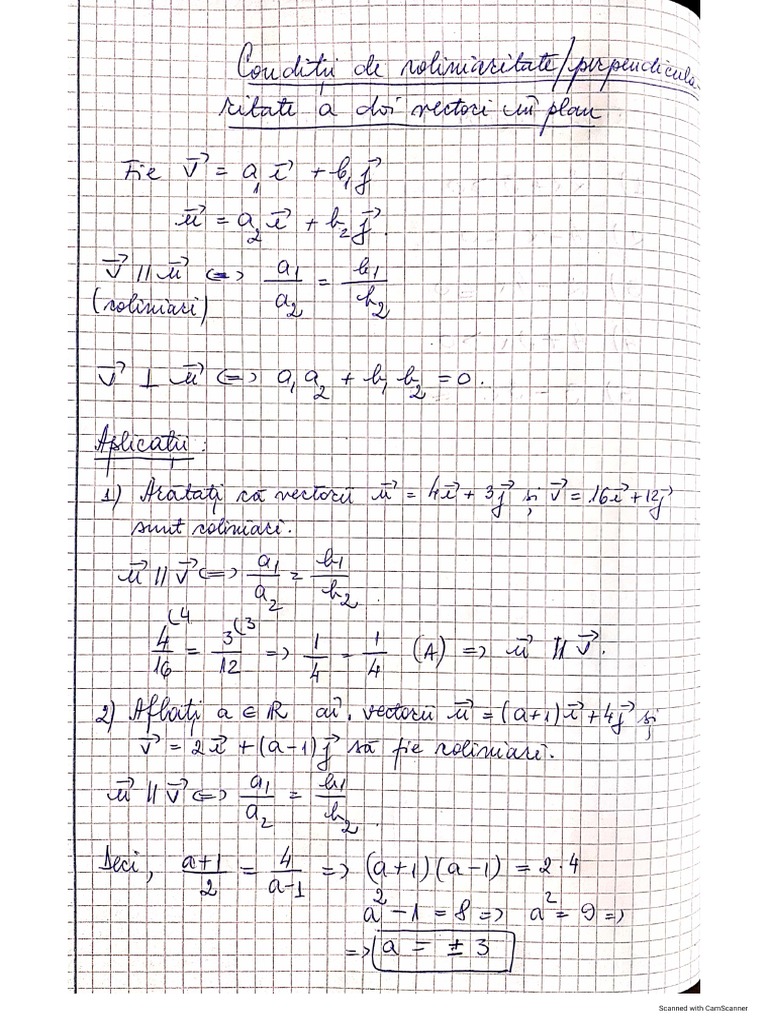 Condiții de coliniaritate/perpendicula-
ritate a doi vectori în plan
Fie v⃗ = a₁i⃗ + b₁j⃗
u⃗ = a₂i⃗ + b₂j⃗.
v⃗ || u⃗ ⇔ a₁/a₂ = b₁/b₂
(coliniari)
v⃗ ⊥ u⃗ ⇔ a₁a₂ + b₁b₂ = 0.
Aplicații:
1) Arătați că vectorii u⃗ = 4i⃗ + 3j⃗ și v⃗ = 16i⃗ + 12j⃗
sunt coliniari.
u⃗ || v⃗ ⇔ a₁/a₂ = b₁/b₂.
4/16 (4 = 3/12 (3 ⇒ 1/4 = 1/4 (A) ⇒ u⃗ || v⃗.
2) Aflați a ∈ ℝ aî. vectorii u⃗ = (a+1)i⃗ + 4j⃗ și
v⃗ = 2i⃗ + (a-1)j⃗ să fie coliniari.
u⃗ || v⃗ ⇔ a₁/a₂ = b₁/b₂.
Deci, (a+1)/2 = 4/(a-1) ⇒ (a+1)(a-1) = 2·4
a² - 1 = 8 ⇒ a² = 9 ⇒
⇒ a = ± 3
Scanned with CamScanner